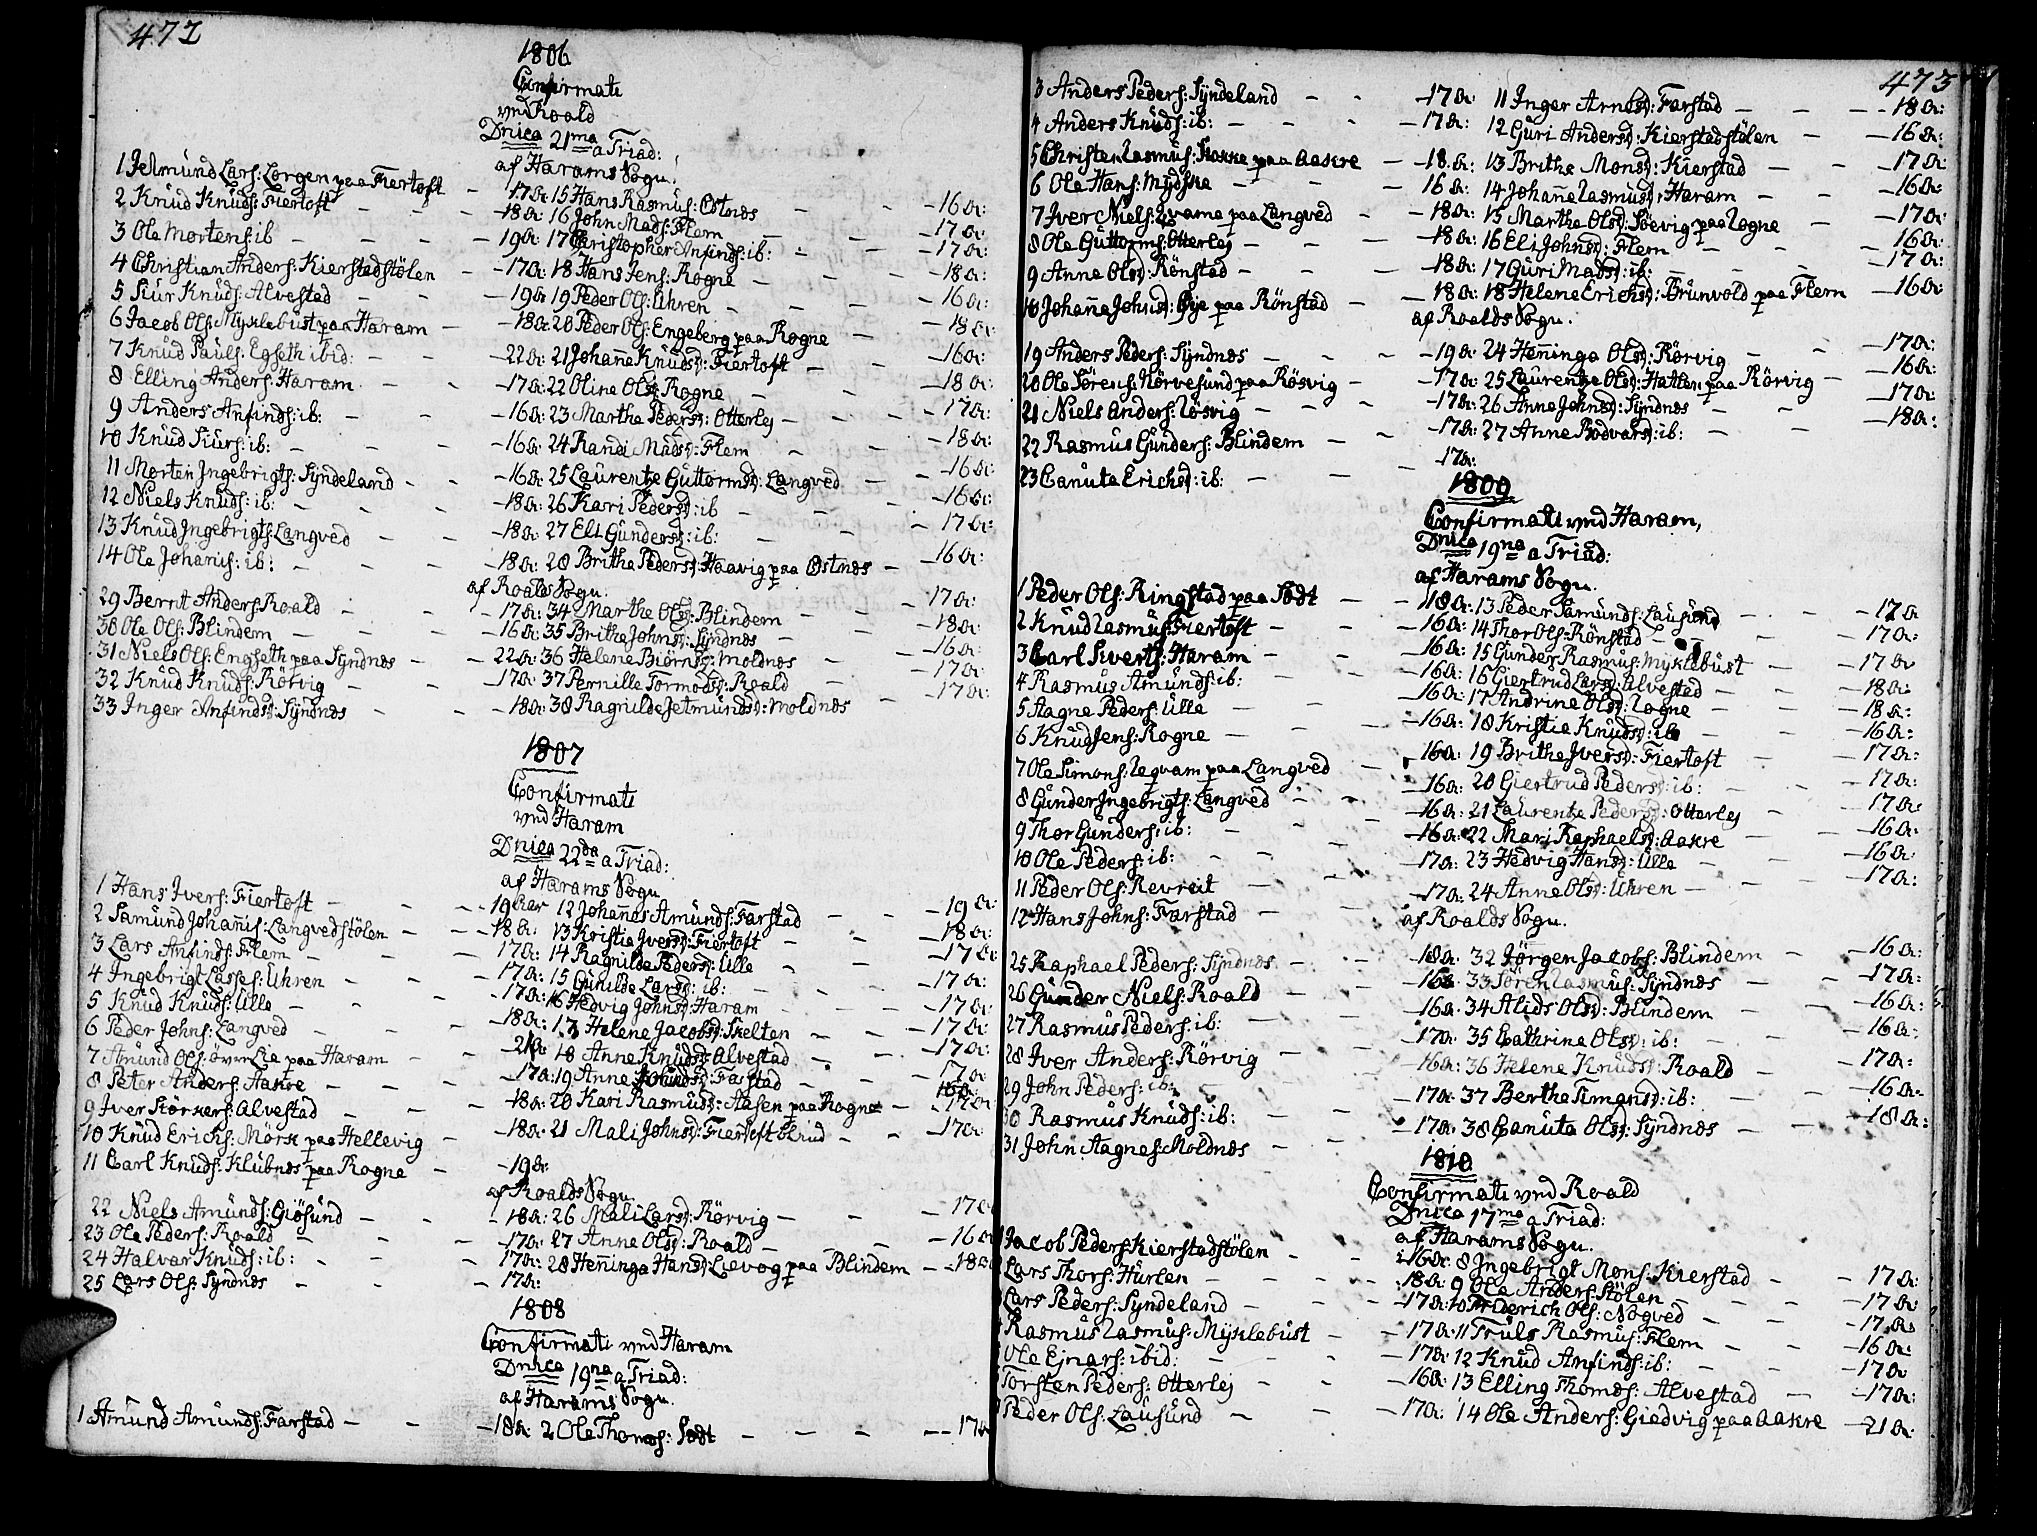 472
1806
Confirmati
vnd Roald
Dnica 21ma a Triad:
af Harams Sogn.
1 Jetmund Lars: Lorgen paa Fiertoft - 17 a: 15 Hans Rasmus: Ostnæs - - 16 a:
2 Knud Knuds: Fiertoft - - - 18 a: 16 John Mads: Flem - - 17 a:
3 Ole Mortens: ib - - - 19 a: 17 Christopher Anfinds: ib: - - 17 a:
4 Christian Anders: Kierstadstölen - 17 a: 18 Hans Jens: Rogne - - 18 a:
5 Siur Knuds: Alvestad - - - 19 a: 19 Peder Ols: Uhren - - 16 a:
6 Jacob Ols: Myklebust paa Haram - 18 a: 20 Peder Ols: Engeberg paa Rogne - 18 a:
7 Knud Pauls: Egseth ibid: - - 22 a: 21 Johane Knudsd: Fiertoft - - 16 a:
8 Elling Anders: Haram - - 17 a: 22 Oline Olsd: Rogne - - 18 a:
9 Anders Anfinds: ib: - - 16 a: 23 Marthe Pedersd: Otterlej - - 17 a:
10 Knud Siurs: ib: - - 16 a: 24 Randi Madsd: Flem - - 18 a:
11 Morten Ingebrigts: Syndeland - - 16 a: 25 Laurentze Guttormsd: Langved - - 16 a:
12 Niels Knuds: ib: - - - 18 a: 26 Kari Pedersd: ib - - 16 a:
13 Knud Ingebrigts: Langved - - 18 a: 27 Eli Gundersd: ib: - - 17 a:
14 Ole Johanis: ib: - - - 18 a: 28 Brithe Pedersd: Haavig paa Ostnæs - 16 a:
af Roalds Sogn.
29 Bernt Anders: Roald - - 17 a: 34 Marthe Olsd: Blindem - - 17 a:
30 Ole Ols: Blindem - - - 16 a: 35 Brithe Johnsd: Syndnæs - - 18 a:
31 Niels Ols: Engseth paa Syndnæs - - 22 a: 36 Helene Biörnsd: Moldnæs - - 16 a:
32 Knud Knuds: Rörvig - - 17 a: 37 Pernille Tormodsd: Roald - - 17 a:
33 Inger Anfindsd: Syndnæs - - 18 a: 38 Ragnilde Jetmundsd: Moldnæs - 17 a:
1807
Confirmati
vnd Haram
Dnica 22da a Triad:
af Harams Sogn
1 Hans Ivers: Fiertoft - - - 19 Aar 12 Johanes Amunds: Farstad - - 19 a:
2 Samund Johanis: Langvedstölen - - 18 a: 13 Kristie Iversd: Fiertoft - - 18 a:
3 Lars Anfinds: Flem - - - 17 a: 14 Ragnilde Pedersd: Ulle - - 17 a:
4 Ingebrigt Lasses: Uhren - - 17 a: 15 Gunilde Larsd: ib: - - 17 a:
5 Knud Knuds: Ulle - - - 17 a: 16 Hedvig Johnsd: Haram - - 17 a:
6 Peder Johns: Langved - - - 18 a: 17 Helene Jacobsd: Skelten - - 17 a:
7 Amund Ols: överlie paa Haram - - 21 a: 18 Anne Knudsd: Alvestad - - 17 a:
8 Peter Anders: Aakre - - - 17 a: 19 Anne Johnsd: Farstad - - 17 a:
9 Iver Körners: Alvestad - - 18 a: 20 Kari Rasmusd: Aasen paa Rogne - 17 a:
10 Knud Erichs: Mörk paa Hellevig - 18 a: 21 Mali Johnsd: Fiertoft blind - - 17 a:
11 Carl Knuds: Klubnæs paa Rogne - 19 a:
af Roalds Sogn.
22 Niels Amunds: Giösund - - 18 a: 26 Mali Larsd: Rörvig - - 17 a:
23 Ole Peders: Roald - - - 17 a: 27 Anne Olsd: Roald - - 16 a:
24 Halvar Knuds: ib: - - - 17 a: 28 Heninga Hansd: Lievog paa Blindem - 18 a:
25 Lars Ols: Syndnæs - - 17 a:
1808
Confirmati vnd Haram
Dnica 19na a Triad:
af Harams Sogn.
1 Amund Amunds: Farstad - - 18 a: 2 Ole Thomas: Södt - - - 17 a:
473
3 Anders Peders: Syndeland - - 17 a: 11 Inger Arnesd: Farstad - - 18 a:
4 Anders Knuds: ib: - - - 17 a: 12 Guri Andersd: Kierstadstölen - 16 a:
5 Christen Rasmus: Kokke paa Aakre - 18 a: 13 Brithe Monsd: Kierstad - - 17 a:
6 Ole Hans: Mydske - - - 16 a: 14 Johane Rasmusd: Haram - - 16 a:
7 Iver Niels: Qvame paa Langved - - 18 a: 15 Marthe Olsd: Söevig paa Rogne - 17 a:
8 Ole Guttorms: Otterlej - - - 18 a: 16 Eli Johnsd: Flem - - 16 a:
9 Anne Olsd: Rönstad - - - 18 a: 17 Guri Madsd: ib: - - 17 a:
10 Johane Johnsd: Öye paa Rönstad - - 18 a: 18 Helene Erichsd: Brunvold paa Flem - 16 a:
af Roalds Sogn.
19 Anders Peders: Syndnæs - - - 19 a: 24 Heninga Olsd: Rörvig - - 17 a:
20 Ole Sörens: Nörvesund paa Rösvig - 17 a: 25 Laurentze Olsd: Hatlen paa Rörvig - 16 a:
21 Niels Anders: Rösvig - - - 17 a: 26 Anne Johnsd: Syndnæs - - 17 a:
22 Rasmus Gunders: Blindem - - 17 a: 27 Anne Bodvarsd: ib: - - 18 a:
23 Canuta Erichsd: ib: - - 17 a:
1809
Confirmati vnd Haram,
Dnica 19na a Triad:
af Harams Sogn.
1 Peder Ols: Ringstad paa Södt - - 18 a: 13 Peder Samunds: Lausund - - 17 a
2 Knud Rasmus: Fiertoft - - - 16 a: 14 Thor Ols: Rönstad - - 17 a:
3 Carl Siverts: Haram - - - 16 a: 15 Gunder Rasmus: Myklebust - 17 a:
4 Rasmus Amunds: ib: - - - 16 a: 16 Giertrud Larsd: Alvestad - - 18 a:
5 Aagne Peders: Ulle - - - 16 a: 17 Andrine Olsd: Rogne - - 18 a:
6 Knud Jens: Rogne - - - 16 a: 18 Kristie Knudsd: ib - - 16 a:
7 Ole Simons: Leqvam paa Langved - 16 a: 19 Brithe Iversd: Fiertoft - - 17 a:
8 Gunder Ingebrigts: Langved - - 16 a: 20 Giertrud Pedersd: ib: - - 17 a:
9 Thor Gunders: ib: - - - 16 a: 21 Laurentze Pedersd: Otterlej - - 17 a:
10 Ole Peders: ib: - - - 16 a: 22 Mari Raphaelsd: Aakre - - 16 a:
11 Peder Ols: Revreit - - - 17 a: 23 Hedvig Hansd: Ulle - - 16 a:
12 Hans Johns: Farstad - - - 17 a: 24 Anne Olsd: Uhren - - 17 a:
af Roalds Sogn.
25 Raphael Peders: Syndnæs - - 18 a: 32 Jörgen Jacobs: Blindem - - 16 a:
26 Gunder Niels: Roald - - 16 a: 33 Sören Rasmus: Syndnæs - - 17 a:
27 Rasmus Peders: ib: - - - 16 a: 34 Alids Olsd: Blindem - - 16 a:
28 Iver Anders: Rörvig - - 17 a: 35 Cathrine Olsd: ib: - - 16 a:
29 John Peders: ib: - - - 16 a: 36 Helene Knudsd: Roald - - 17 a:
30 Rasmus Knuds: ib: - - - 17 a: 37 Berthe Timansd: ib: - - 16 a:
31 John Aagnes: Moldnæs - - 17 a: 38 Canuta Olsd: Syndnæs - - 18 a:
1810
Confirmati vnd Roald
Dnica 17ma a Triad:
af Harams Sogn.
Jacob Peders: Kierstadstölen - - 16 a: 8 Ingebrigt Mons: Kierstad - - 17 a:
Lars Thors: Hurlen - - - 18 a: 9 Ole Anders: Stölen - - 17 a:
Lars Peders: Syndeland - - - 17 a: 10 Friderich Ols: Nogved - - 17 a:
Rasmus Rasmus: Myklebust - - 17 a: 11 Truls Rasmus: Flem - - 16 a:
Ole Ejnars: ibid: - - - 17 a: 12 Knud Anfinds: ib: - - 17 a:
Torsten Peders: Otterlej - - - 16 a: 13 Elling Thomæs: Alvestad - - 17 a:
Peder Ols: Lausund - - - 17 a: 14 Ole Anders: Giedvig paa Aakre - 21 a: